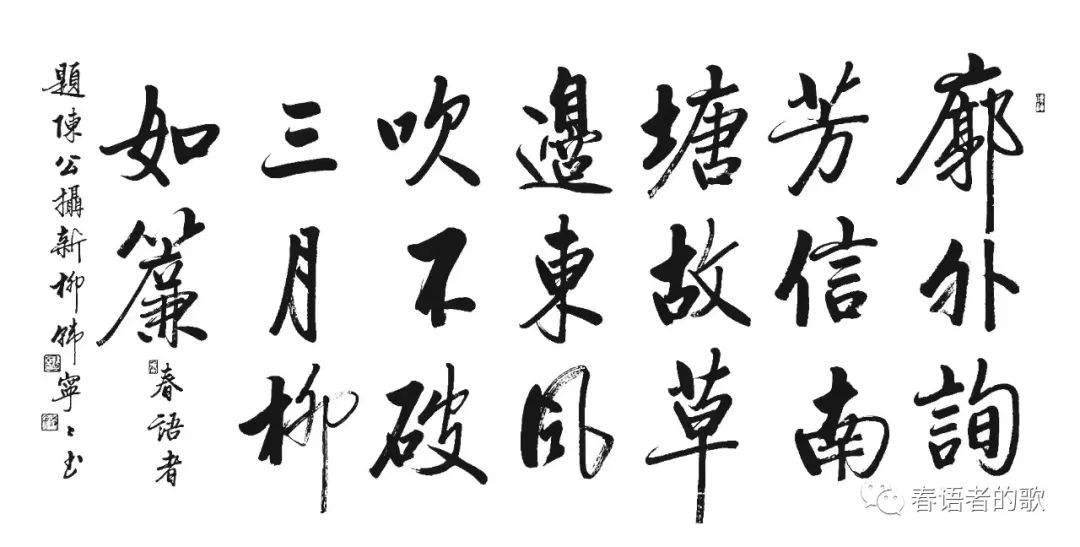 廓外詢
芳信南
塘故草
邊東风
吹不破
三月柳
如簾
春語者
題陳公攝新柳韩寧寧书
春语者的歌